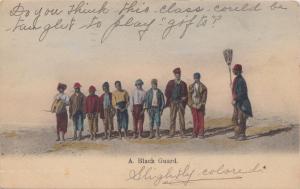 Do you think this class could be
taught to play "golfto"?
A. Black Guard.
Slightly colored.